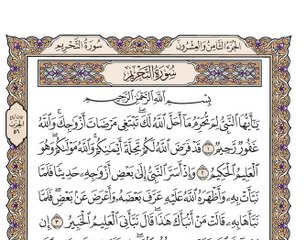 سُورَةُ التَّحۡرِيمِ
الجُزْءُ الثَّامِنُ وَالعِشْرُونَ
سُورَةُ التَّحۡرِيمِ
بِسۡمِ ٱللَّهِ ٱلرَّحۡمَٰنِ ٱلرَّحِيمِ
يَٰٓأَيُّهَا ٱلنَّبِيُّ لِمَ تُحَرِّمُ مَآ أَحَلَّ ٱللَّهُ لَكَۖ تَبۡتَغِي مَرۡضَاتَ أَزۡوَٰجِكَۚ وَٱللَّهُ
غَفُورٞ رَّحِيمٞ ١ قَدۡ فَرَضَ ٱللَّهُ لَكُمۡ تَحِلَّةَ أَيۡمَٰنِكُمۡۚ وَٱللَّهُ مَوۡلَىٰكُمۡۖ وَهُوَ
ٱلۡعَلِيمُ ٱلۡحَكِيمُ ٢ وَإِذۡ أَسَرَّ ٱلنَّبِيُّ إِلَىٰ بَعۡضِ أَزۡوَٰجِهِۦ حَدِيثٗا فَلَمَّا
نَبَّأَتۡ بِهِۦ وَأَظۡهَرَهُ ٱللَّهُ عَلَيۡهِ عَرَّفَ بَعۡضَهُۥ وَأَعۡرَضَ عَنۢ بَعۡضٖۖ فَلَمَّا
نَبَّأَهَا بِهِۦ قَالَتۡ مَنۡ أَنۢبَأَكَ هَٰذَاۖ قَالَ نَبَّأَنِيَ ٱلۡعَلِيمُ ٱلۡخَبِيرُ ٣